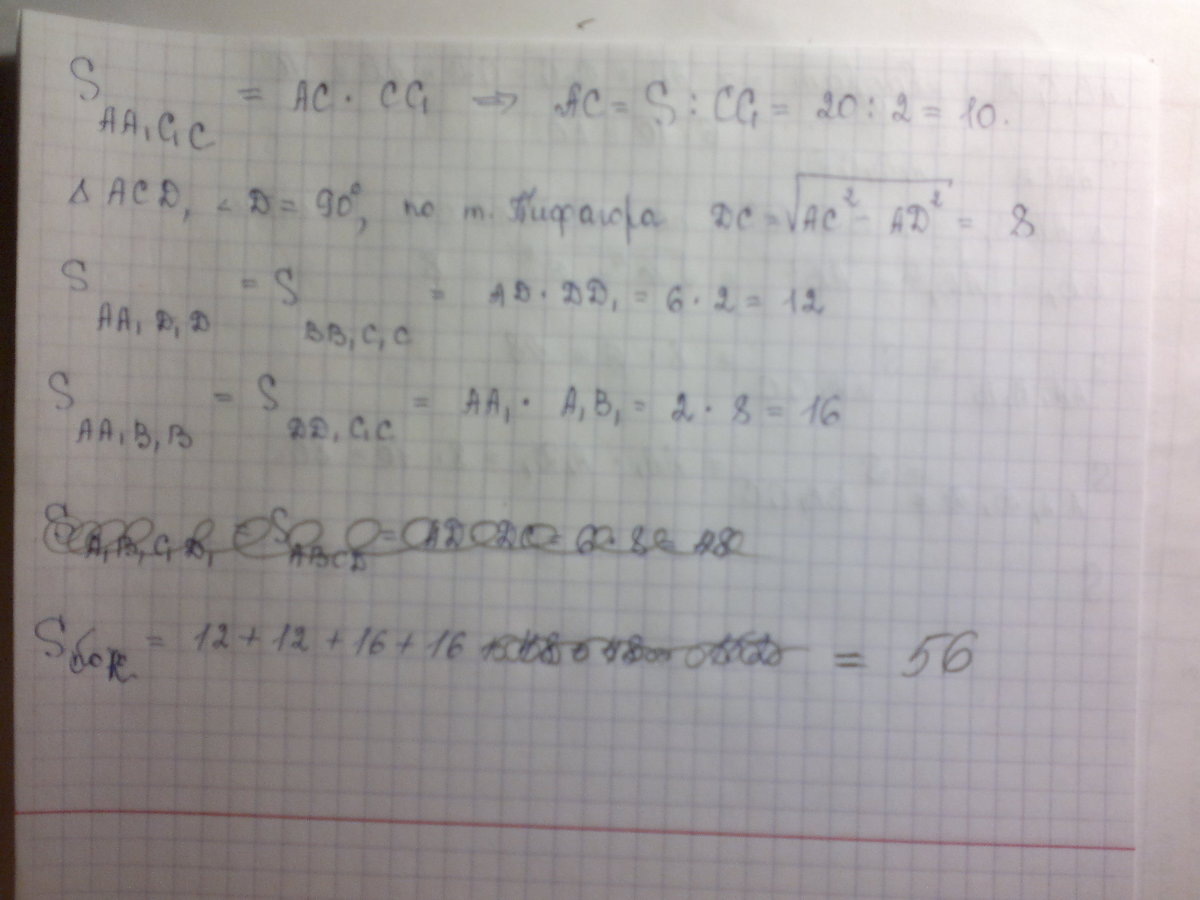 S AA₁C₁C = AC · CC₁ ⇒ AC = S : CC₁ = 20 : 2 = 10.
Δ ACD, ∠D = 90°, по т. Пифагора DC = √AC² - AD² = 8
S AA₁D₁D = S BB₁C₁C = AD · DD₁ = 6 · 2 = 12
S AA₁B₁B = S DD₁C₁C = AA₁ · A₁B₁ = 2 · 8 = 16
S A₁B₁C₁D₁ = S ABCD = AD · DC = 6 · 8 =
S бок = 12 + 12 + 16 + 16 = 56